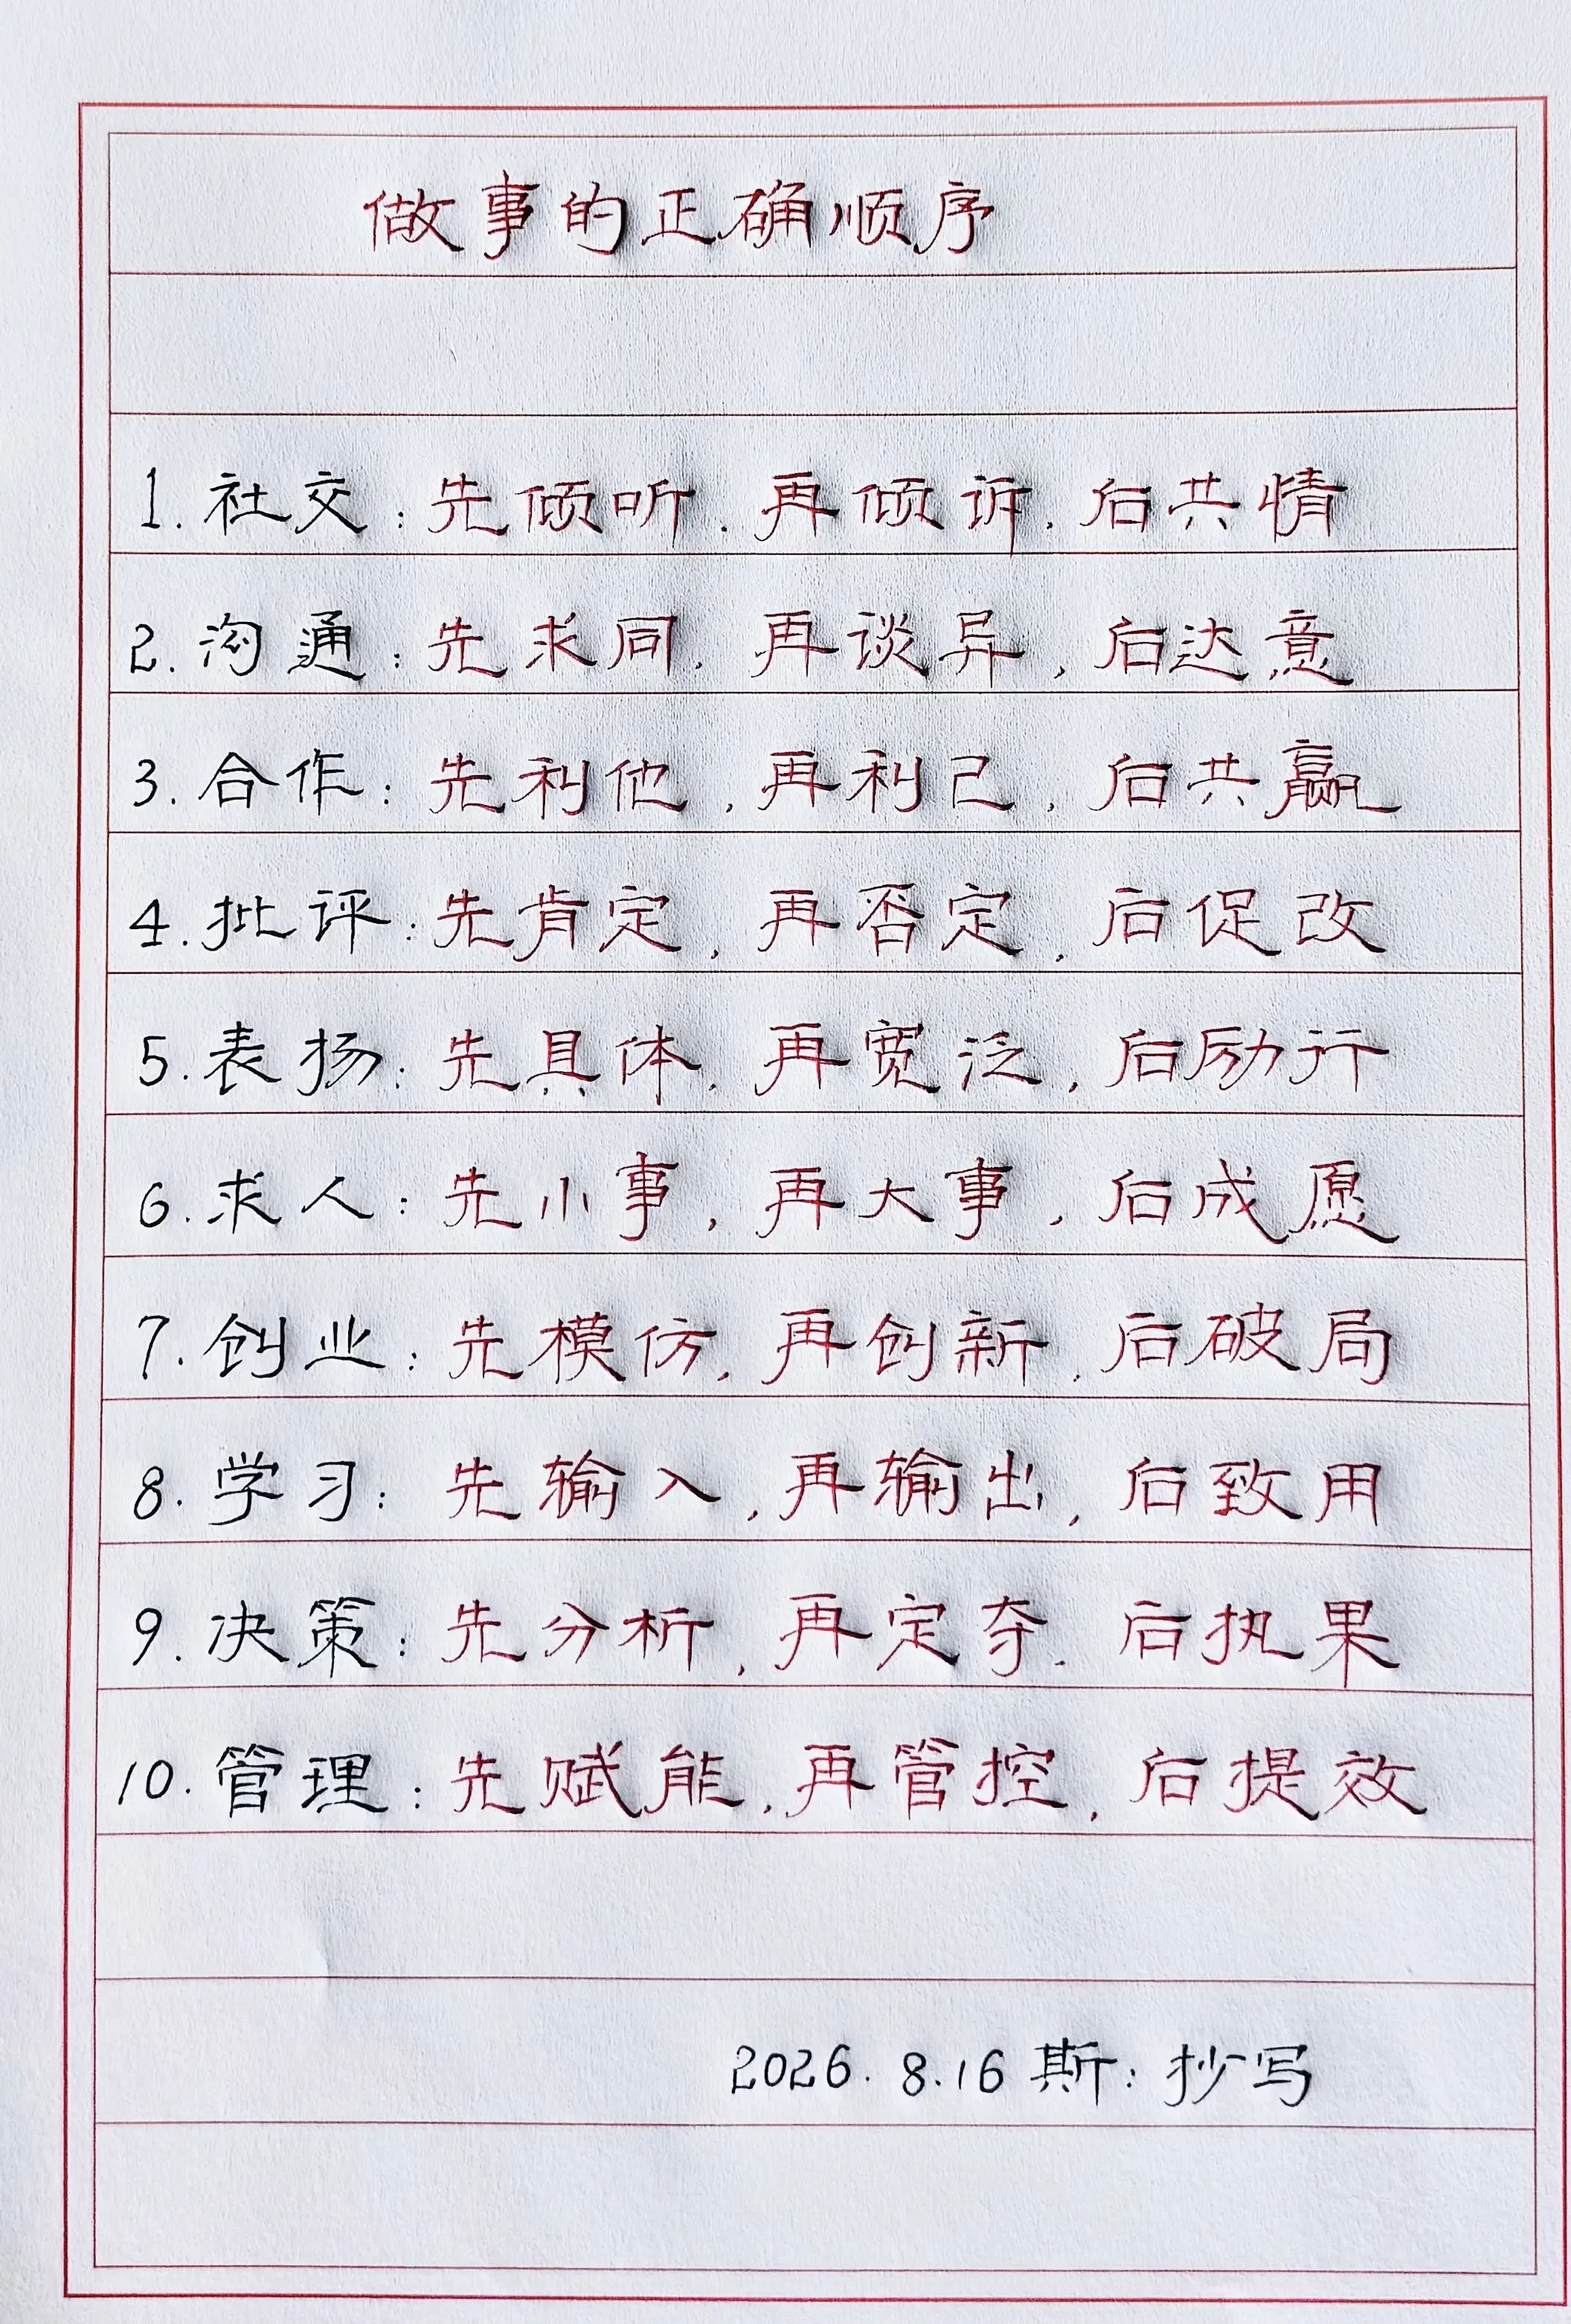 做事的正确顺序
1. 社交：先倾听，再倾诉，后共情
2. 沟通：先求同，再谈异，后达意
3. 合作：先利他，再利己，后共赢
4. 批评：先肯定，再否定，后促改
5. 表扬：先具体，再宽泛，后励行
6. 求人：先小事，再大事，后成愿
7. 创业：先模仿，再创新，后破局
8. 学习：先输入，再输出，后致用
9. 决策：先分析，再定夺，后执果
10. 管理：先赋能，再管控，后提效
2026. 8.16 斯：抄写